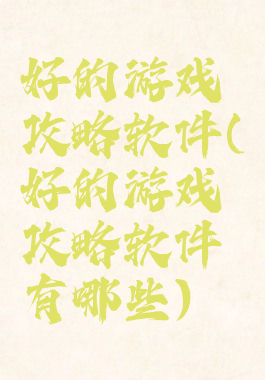 好的游戏
攻略软件(
好的游戏
攻略软件
有哪些)